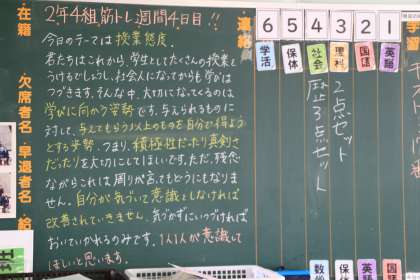 2年4組筋トレ週間4日目!!
今日のテーマは授業態度。
君たちはこれから、学生としてたくさんの授業を
うけるでしょうし、社会人になってからも学びは
つづきます。そんな中、大切になってくるのは
学びに向かう姿勢です。与えられるものに
対して、与えてもらう以上のものを自分で得よう
とする姿勢。つまり、積極性だったり真剣さ
だったりを大切にしてほしいです。ただ、残念
ながらこれは周りが言ってもどうにもなりません。
自分が気づいて意識をしなければ
改善されていきません。気づかずにいつづければ
おいていかれるのみです。1人1人が意識して
ほしいと思います。
在籍
欠席者名・早退者名・給
連絡
6 5 4 3 2 1
学活 保体 社会 理科 国語 英語
2点セット
歴3点セット
数学 保体 英語 国語